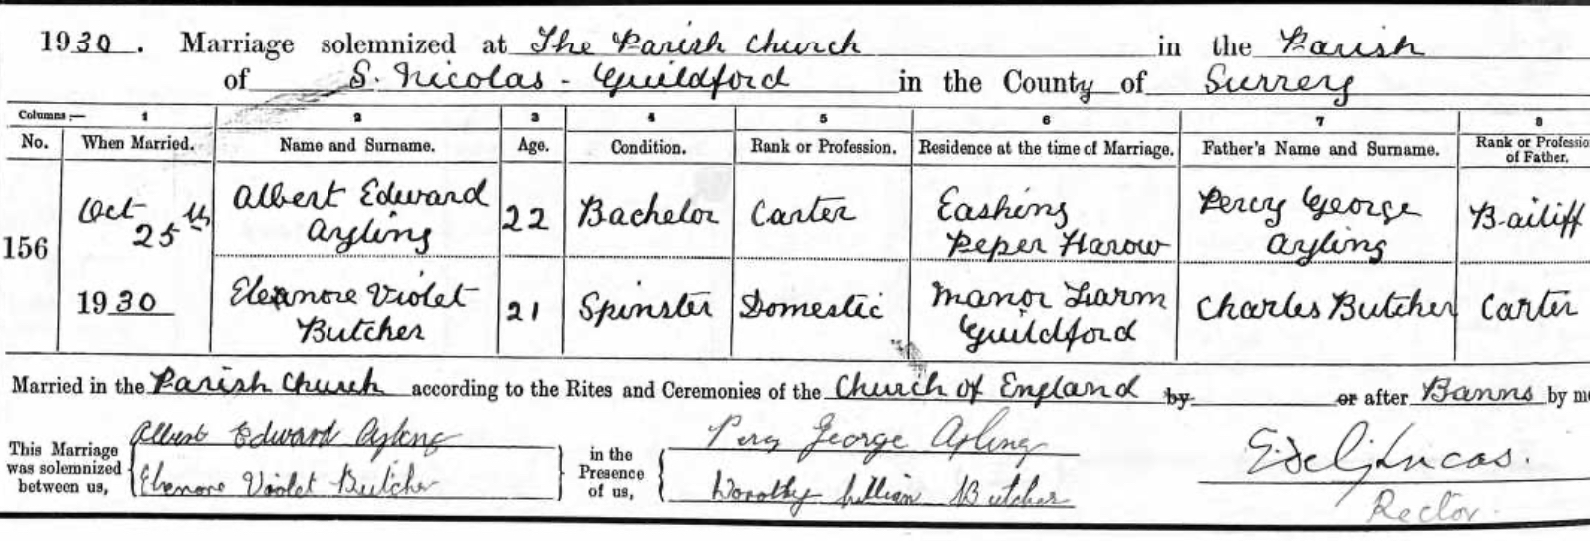 1930. Marriage solemnized at The Parish Church in the Parish
of S. Nicolas - Guildford in the County of Surrey
Columns:— 1 2 3 4 5 6 7 8
No. When Married. Name and Surname. Age. Condition. Rank or Profession. Residence at the time of Marriage. Father's Name and Surname. Rank or Professio
of Father.
156 Oct 25th 1930 Albert Edward Ayling 22 Bachelor Carter Eashing Peper Harow Percy George Ayling Bailiff
Eleanore Violet Butcher 21 Spinster Domestic Manor Farm Guildford Charles Butcher Carter
Married in the Parish Church according to the Rites and Ceremonies of the Church of England by or after Banns by me
This Marriage was solemnized between us, Albert Edward Ayling in the Presence of us, Percy George Ayling
Elenore Violet Butcher Dorothy Lillian Butcher Lucas.
Rector.